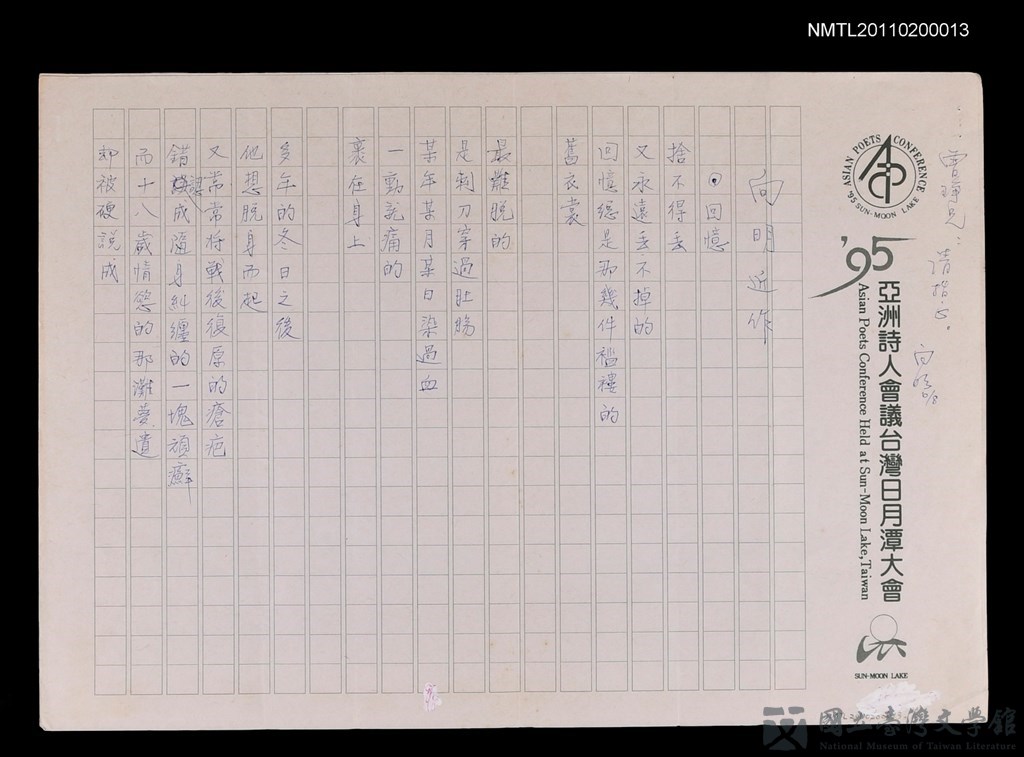 NMTL20110200013
ASIAN POETS CONFERENCE
'95 SUN-MOON LAKE
'95
亞洲詩人會議台灣日月潭大會
Asian Poets Conference Held at Sun-Moon Lake, Taiwan
SUN-MOON LAKE
請指正。
向明
向明近作
●回憶
捨不得丟
又永遠丟不掉的
回憶總是那幾件襤褸的
舊衣裳
最難脱的
是刺刀穿過肚腸
某年某月某日染過血
一動就痛的
裹在身上
多年的冬日之後
他想脱身而起
又常常將戰後復原的瘡疤
錯認成滿身糾纏的一塊頑癬
而十八歲情慾的那灘夢遺
却被硬説成
國立臺灣文學館
National Museum of Taiwan Literature